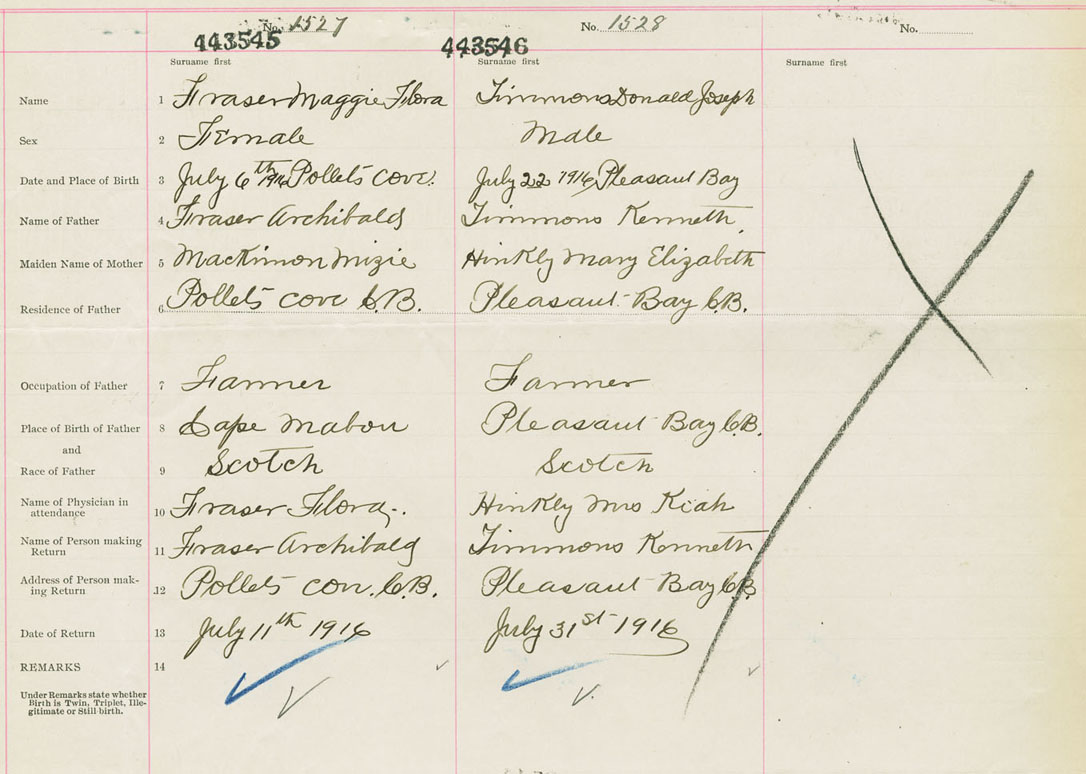 No. 1527 No. 1528 No.
443545 443546
Surname first Surname first Surname first
Name 1 Fraser Maggie Flora Timmons Donald Joseph
Sex 2 Female Male
Date and Place of Birth 3 July 6th 1916 Pollets cove. July 22 1916 Pleasant Bay
Name of Father 4 Fraser Archibald Timmons Kenneth
Maiden Name of Mother 5 MacKinnon Mizie Hinkly Mary Elizabeth
Residence of Father 6 Pollets cove C.B. Pleasant Bay C.B.
Occupation of Father 7 Farmer Farmer
Place of Birth of Father 8 Cape Mabou Pleasant Bay C.B.
and
Race of Father 9 Scotch Scotch
Name of Physician in
attendance 10 Fraser Flora Hinkly Mrs Kiah
Name of Person making
Return 11 Fraser Archibald Timmons Kenneth
Address of Person mak-
ing Return 12 Pollets cov. C.B. Pleasant Bay C.B.
Date of Return 13 July 11th 1916 July 31st 1916
REMARKS 14
Under Remarks state whether
Birth is Twin, Triplet, Ille-
gitimate or Still birth.